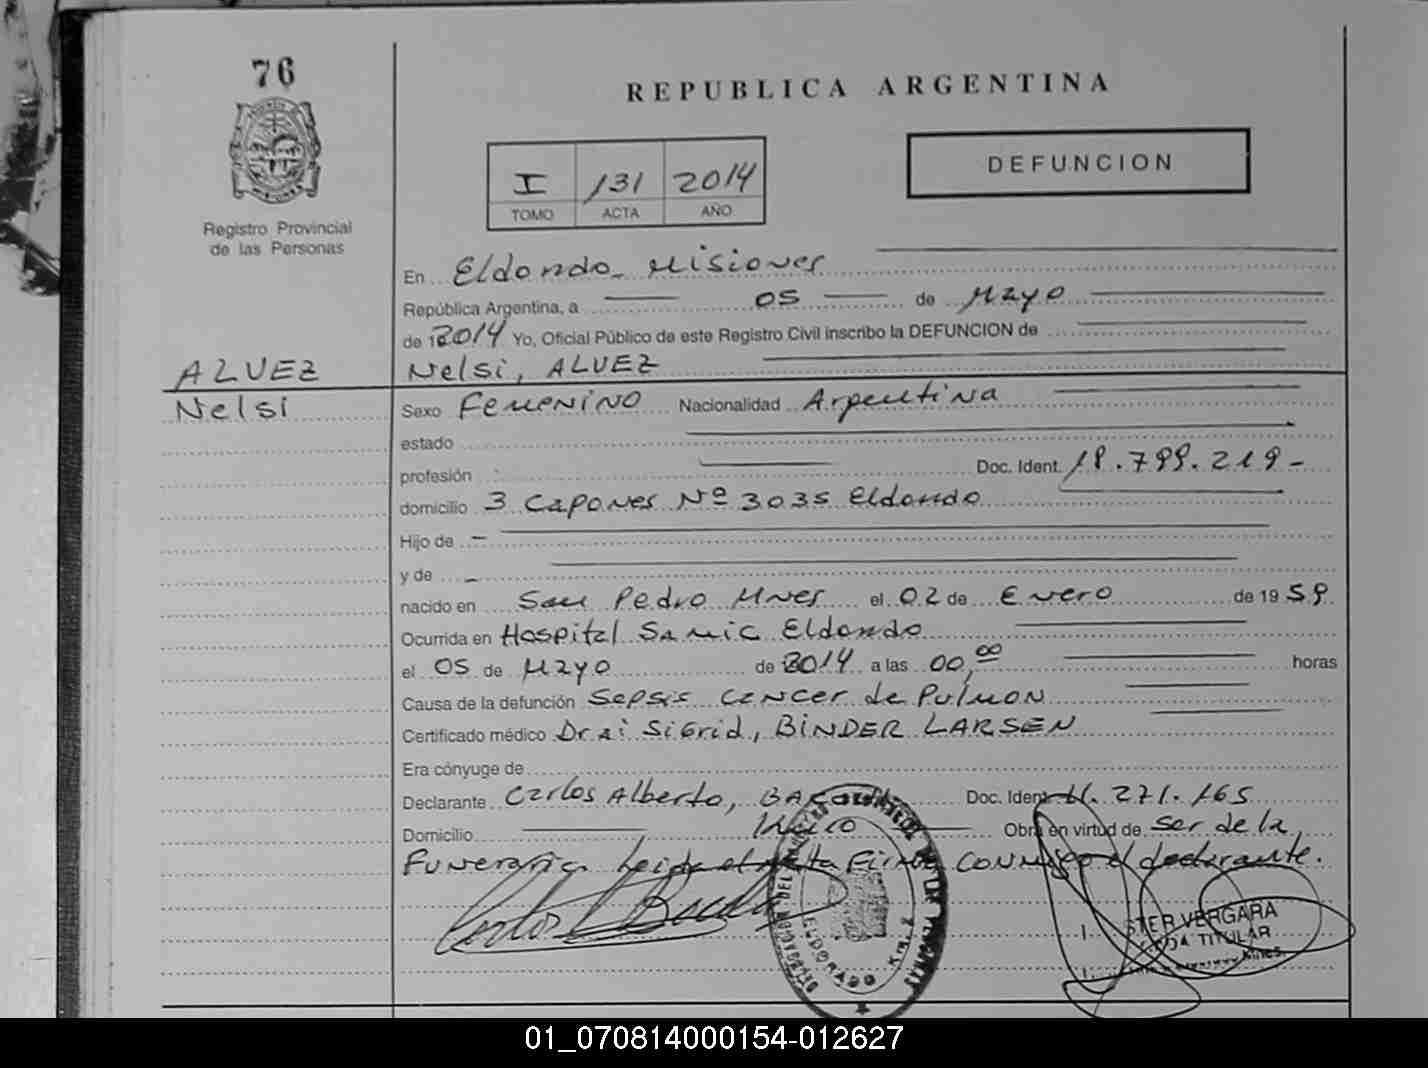 76
REPUBLICA ARGENTINA
DEFUNCION
I 131 2014
TOMO ACTA AÑO
Registro Provincial
de las Personas
En Eldorado Misiones
República Argentina, a 05 de Mayo
de 2014 Yo, Oficial Público de este Registro Civil inscribo la DEFUNCION de
ALVEZ Nelsi, ALVEZ
Nelsi Sexo Femenino Nacionalidad Argentina
estado
profesión Doc. Ident. 18.799.219-
domicilio 3 Capones Nº 3035 Eldorado
Hijo de -
y de -
nacido en San Pedro Mnes el 02 de Enero de 1959
Ocurrida en Hospital Samic Eldorado
el 05 de Mayo de 2014 a las 00,00 horas
Causa de la defunción Sepsis Cancer de Pulmon
Certificado médico Dr.ai Sigrid, BINDER LARSEN
Era cónyuge de
Declarante Carlos Alberto, Doc. Ident. 11.271.165
Domicilio Obra en virtud de ser de la
Funeraria Leida el Acta Firma CONmigo el declarante.
ELDORADO Km. 
VERGARA
TITULAR
Mnes.
01_070814000154-012627